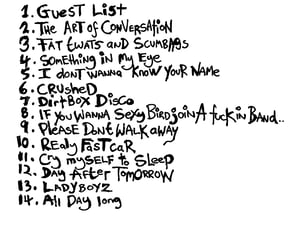 1. GuEST LisT
2. THE ART of CONVERSATION
3. FAT tWATS aND SCUMBAGS
4. SOMEtHiNG iN My EyE
5. I dONT WANNA KNOW YOUR NAME
6. CRUSHED
7. DirtBOX DISCO
8. IF YOU WANNA SEXy BIRD joiN A fuckiN BAND..
9. PLEASE DONt WALK aWAY
10. REally FaST caR
11. CRy mySELF to SLEEP
12. DAY AFTER TOMORROW
13. LADYBOYZ
14. All DAY loNg